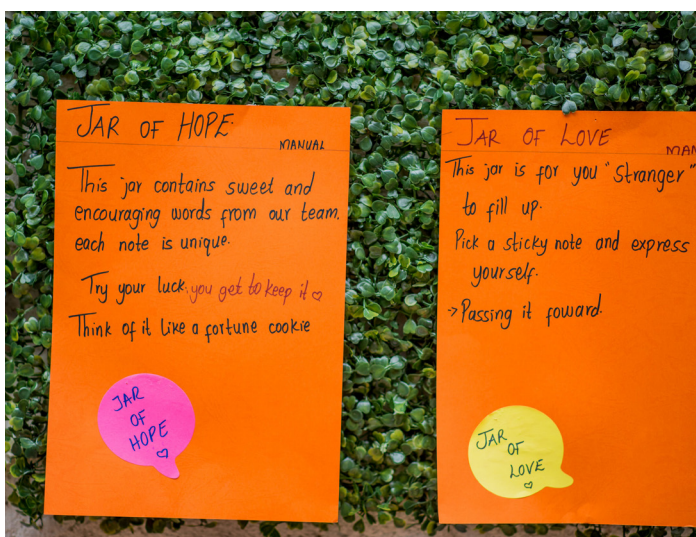 JAR OF HOPE
MANUAL
This jar contains sweet and
encouraging words from our team.
each note is unique.
Try your luck, you get to keep it ♡
Think of it like a fortune cookie
JAR
OF
HOPE
♡
JAR OF LOVE
MAN
This jar is for you "Stranger"
to fill up.
Pick a sticky note and express
yourself.
→ Passing it foward.
JAR
OF
LOVE
♡